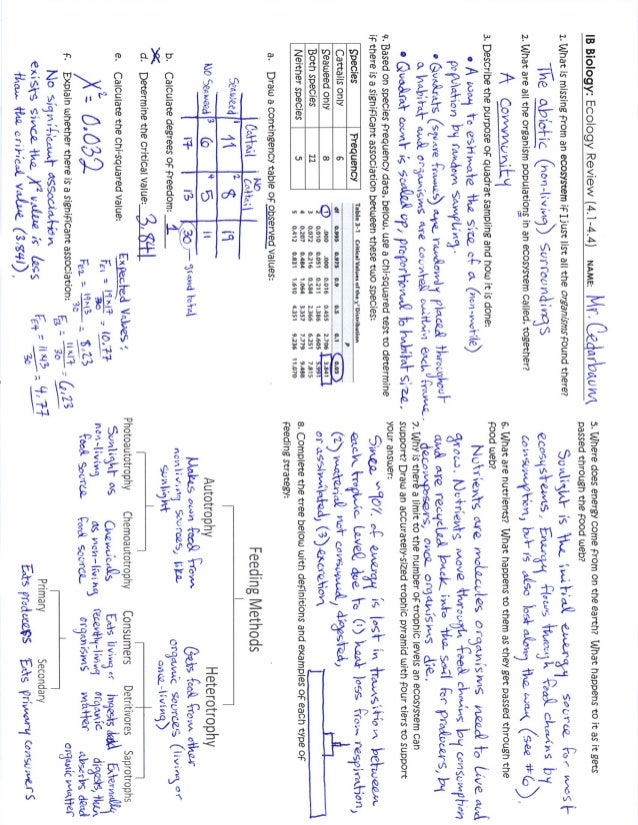 IB Biology: Ecology Review (4.1-4.4) NAME: Mr. Cedarbaum
1. What is missing from an ecosystem if I just list all the organisms found there?
The abiotic (non-living) surroundings
2. What are all the organism populations in an ecosystem called, together?
A community
3. Describe the purpose of quadrat sampling and how it is done:
• A way to estimate the size of a (non-motile)
population by random sampling.
• Quadrats (square frames) are randomly placed throughout
a habitat and organisms are counted within each frame
• Quadrat count is scaled up, proportional to habitat size.
4. Based on species frequency data, below, use a chi-squared test to determine
if there is a significant association between these two species:
Species Frequency
Cattails only 6
Seaweed only 8
Both species 11
Neither species 5
Table 3-1 Critical Values of the χ² Distribution
P
df 0.995 0.975 0.9 0.5 0.1 0.05
1 .000 .000 0.016 0.455 2.706 3.841
2 0.010 0.051 0.211 1.386 4.605 5.991
3 0.072 0.216 0.584 2.366 6.251 7.815
4 0.207 0.484 1.064 3.357 7.779 9.488
5 0.412 0.831 1.610 4.351 9.236 11.070
a. Draw a contingency table of observed values:
Cattail No Cattail
Seaweed 1 11 2 8 19
No Seaweed 3 6 4 5 11
17 13 30 - grand total
b. Calculate degrees of freedom: 1
d. Determine the critical value: 3.841
e. Calculate the chi-squared value:
X² = 0.032
Expected Values:
FE1 = 19x17 / 30 = 10.77
FE2 = 19x13 / 30 = 8.23
E3 = 11x17 / 30 = 6.23
FE4 = 11x13 / 30 = 4.77
f. Explain whether there is a significant association:
No significant association
exists since the X² value is less
than the critical value (3.841).
5. Where does energy come from on the earth? What happens to it as it gets
passed through the food web?
Sunlight is the initial energy source for most
ecosystems. Energy flows through food chains by
consumption, but is also lost along the way (see #6).
6. What are nutrients? What happens to them as they get passed through the
food web?
Nutrients are molecules organisms need to live and
grow. Nutrients move through food chains by consumption
and are recycled back into the soil for producers, by
decomposers, once organisms die.
7. Why is there a limit to the number of trophic levels an ecosystem can
support? Draw an accurately-sized trophic pyramid with four tiers to support
your answer:
Since ~90% of energy is lost in transition between
each trophic level due to (1) heat loss from respiration,
(2) material not consumed, digested,
or assimilated, (3) excretion
8. Complete the tree below with definitions and examples of each type of
feeding strategy:
Feeding Methods
Autotrophy Heterotrophy
Makes own food from
nonliving sources, like
sunlight
Gets food from other
organic sources (living or
once-living)
Photoautotrophy Chemoautotrophy Consumers Detritivores Saprotrophs
Sunlight as
non-living
food source
Chemicals
as non-living
food source
Eats living or
recently-living
organisms
Ingests dead
organic
matter
Externally
digests, then
absorbs dead
organic matter
Primary Secondary
Eats producers Eats primary consumers